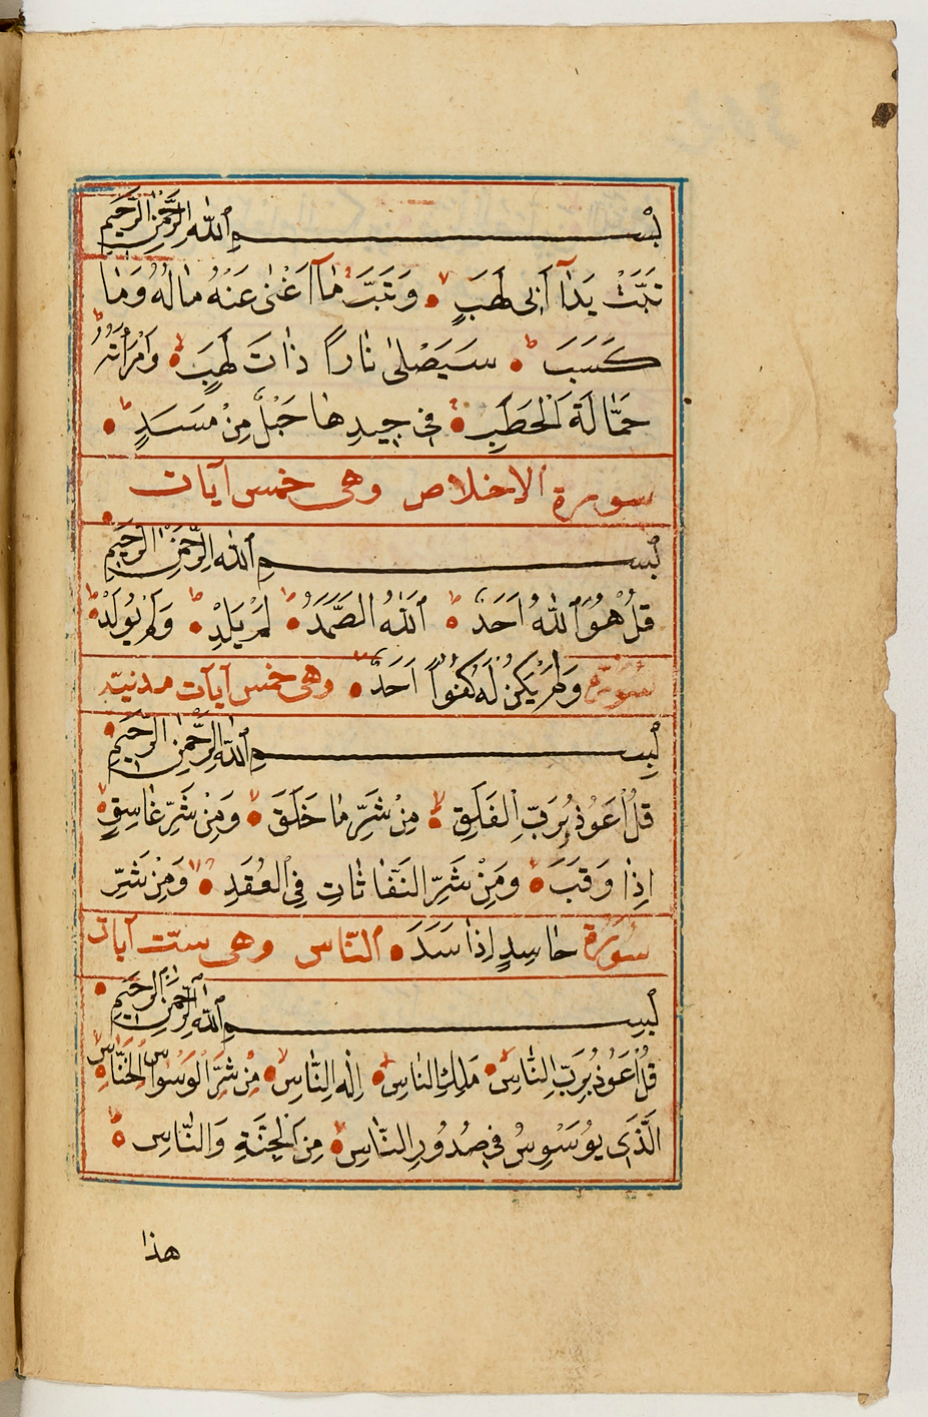 بِسْمِ ٱللّٰهِ الرَّحْمٰنِ الرَّحِيمِ
تَبَّتْ يَدَآ اَبِى لَهَبٍ وَتَبَّ مَآ اَغْنٰى عَنْهُ مَالُهُ وَمَا
كَسَبَ سَيَصْلٰى نَاراً ذَاتَ لَهَبٍ وَامْرَأَتُهُ
حَمَّالَةَ الْحَطَبِ فِى جِيدِهَا حَبْلٌ مِنْ مَسَدٍ
سورة الاخلاص وهى خمس آيات
بِسْمِ ٱللّٰهِ الرَّحْمٰنِ الرَّحِيمِ
قُلْ هُوَ ٱللّٰهُ اَحَدٌ ٱللّٰهُ الصَّمَدُ لَمْ يَلِدْ وَلَمْ يُولَدْ
سورة وَلَمْ يَكُنْ لَهُ كُفُواً اَحَدٌ وهى خمس آيات مدنية
بِسْمِ ٱللّٰهِ الرَّحْمٰنِ الرَّحِيمِ
قُلْ اَعُوذُ بِرَبِّ الْفَلَقِ مِنْ شَرِّ مَا خَلَقَ وَمِنْ شَرِّ غَاسِقٍ
اِذَا وَقَبَ وَمِنْ شَرِّ النَّفَّاثَاتِ فِى الْعُقَدِ وَمِنْ شَرِّ
سورة حَاسِدٍ اِذَا سَدَدَ النّاس وهى ستّ آيات
بِسْمِ ٱللّٰهِ الرَّحْمٰنِ الرَّحِيمِ
قُلْ اَعُوذُ بِرَبِّ النَّاسِ مَلِكِ النَّاسِ اِلٰهِ النَّاسِ مِنْ شَرِّ الْوَسْوَاسِ الْخَنَّاسِ
الَّذِى يُوَسْوِسُ فِى صُدُورِ النَّاسِ مِنَ الْجِنَّةِ وَالنَّاسِ
هذا